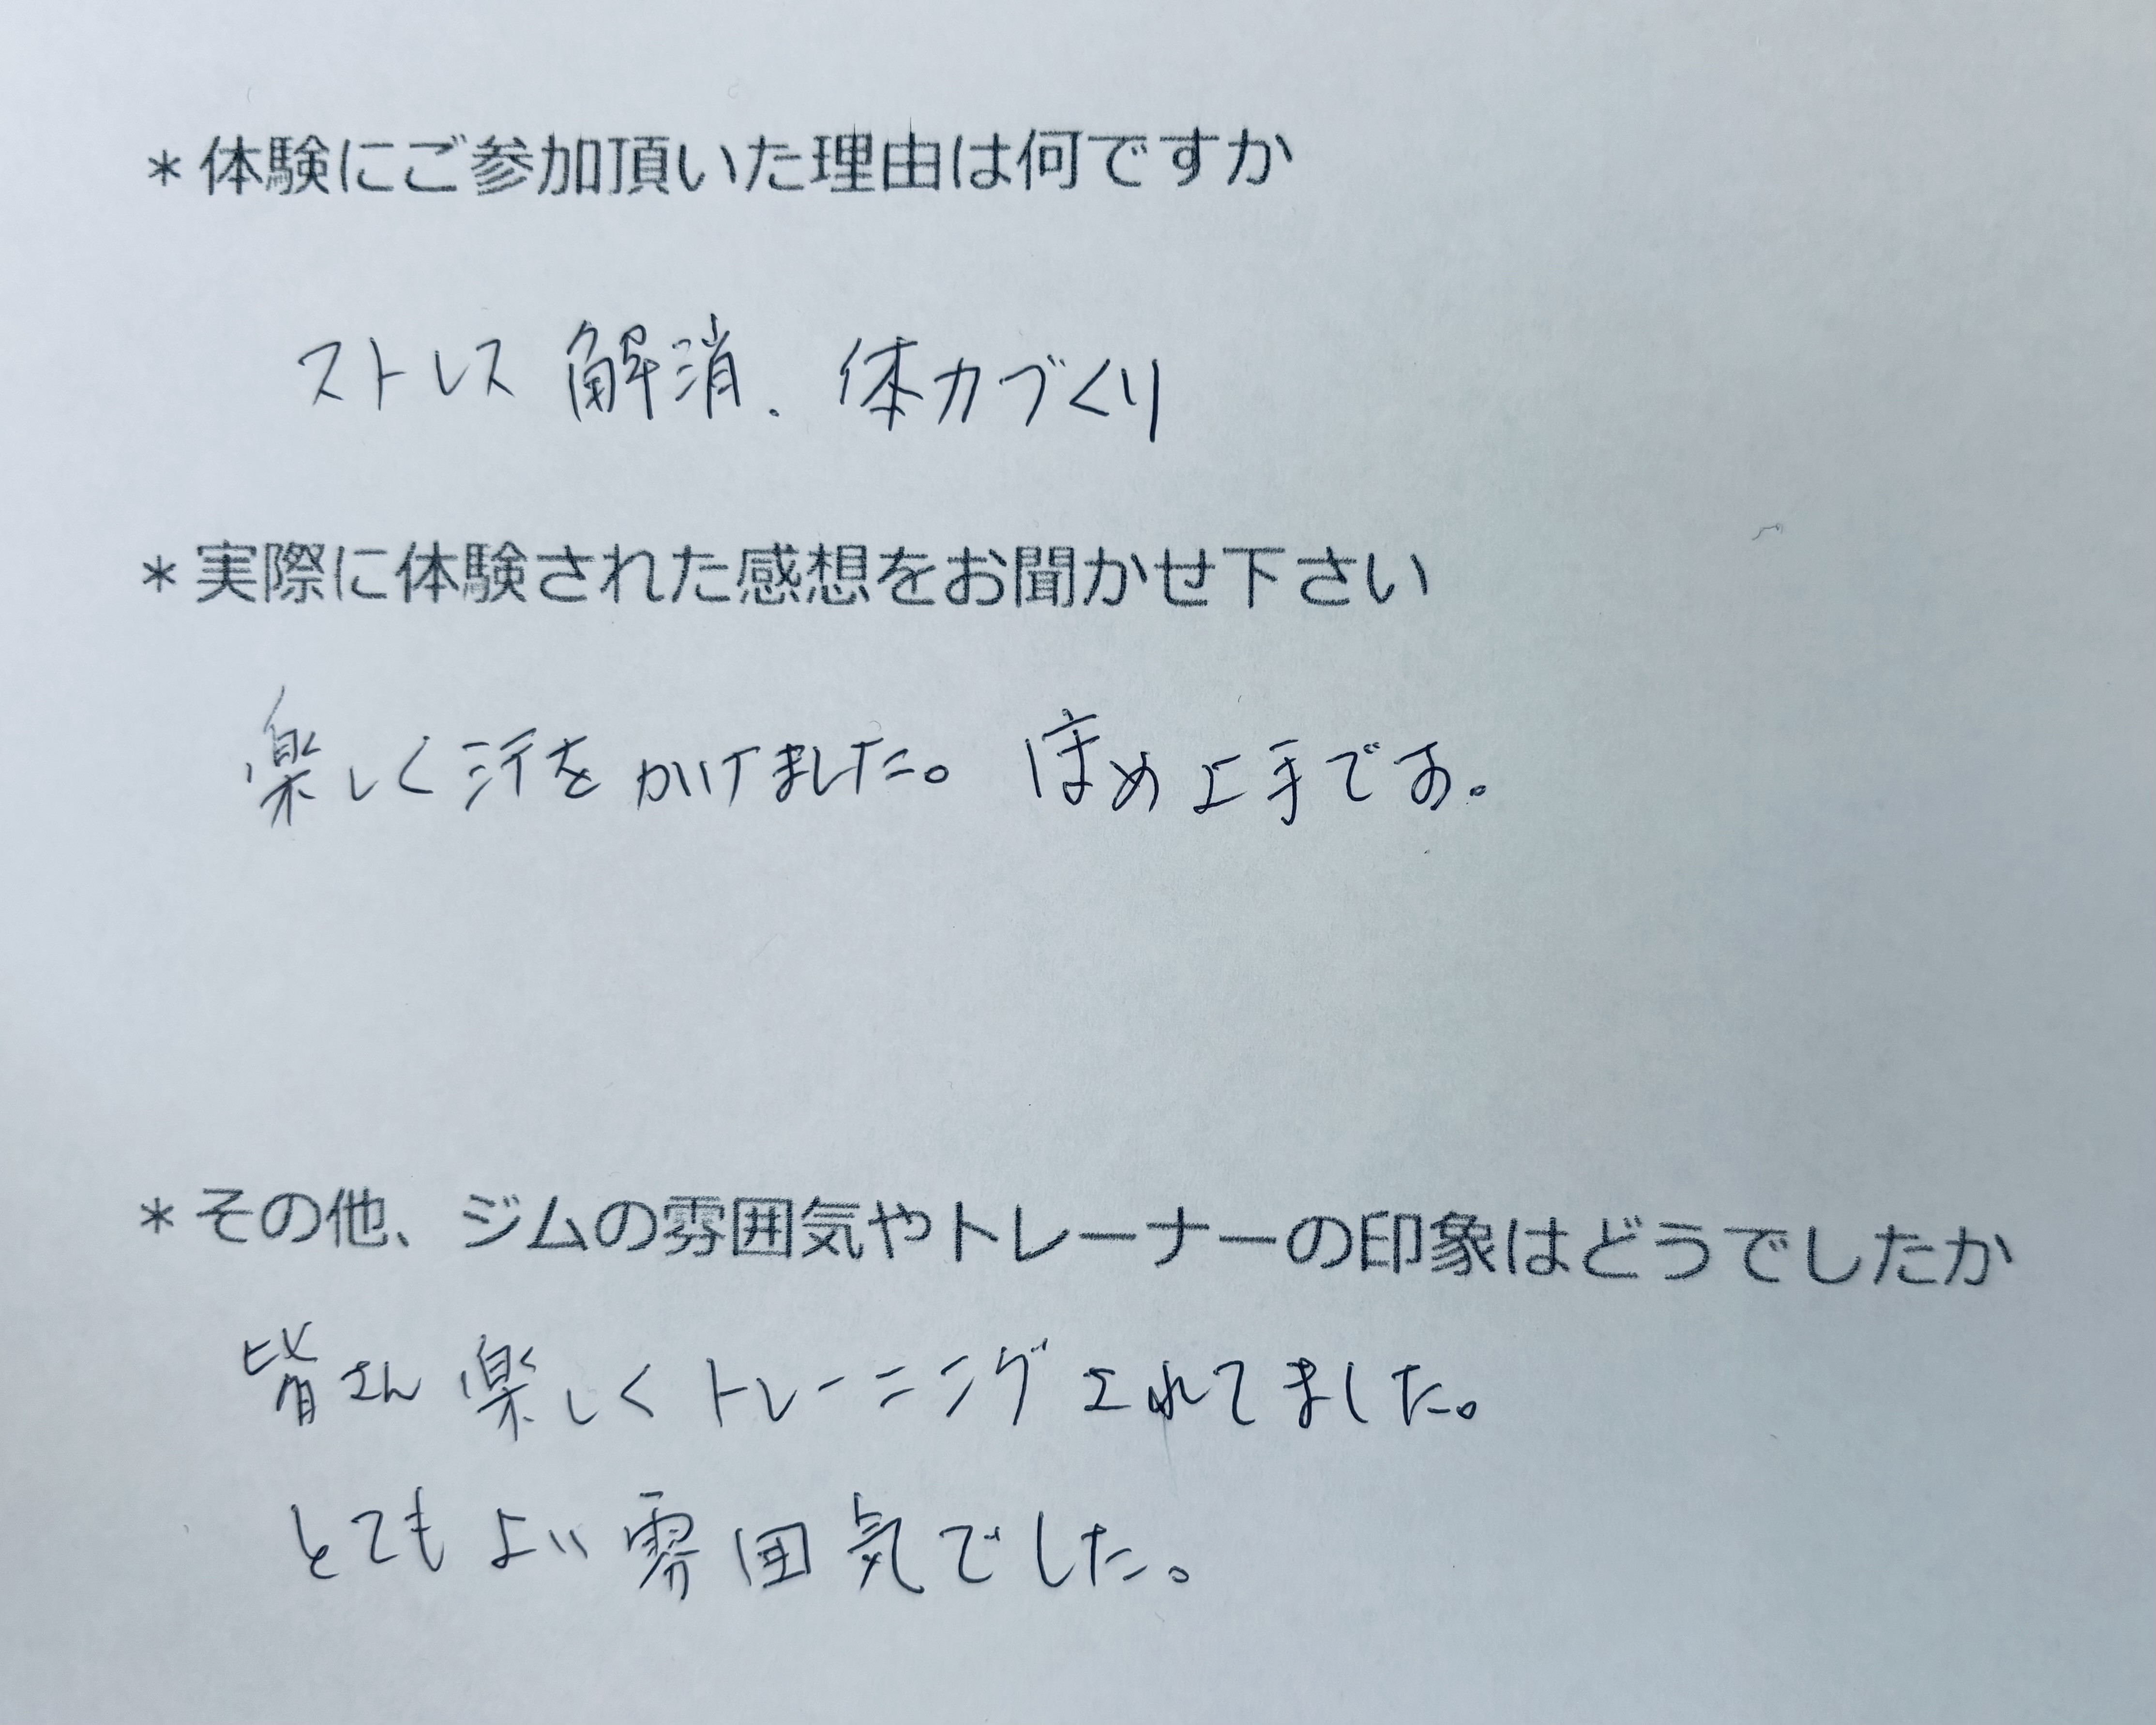 *体験にご参加頂いた理由は何ですか
ストレス解消、体力づくり
*実際に体験された感想をお聞かせ下さい
楽しく汗をかけました。ほめ上手です。
*その他、ジムの雰囲気やトレーナーの印象はどうでしたか
皆さん楽しくトレーニングされてました。
とてもよい雰囲気でした。